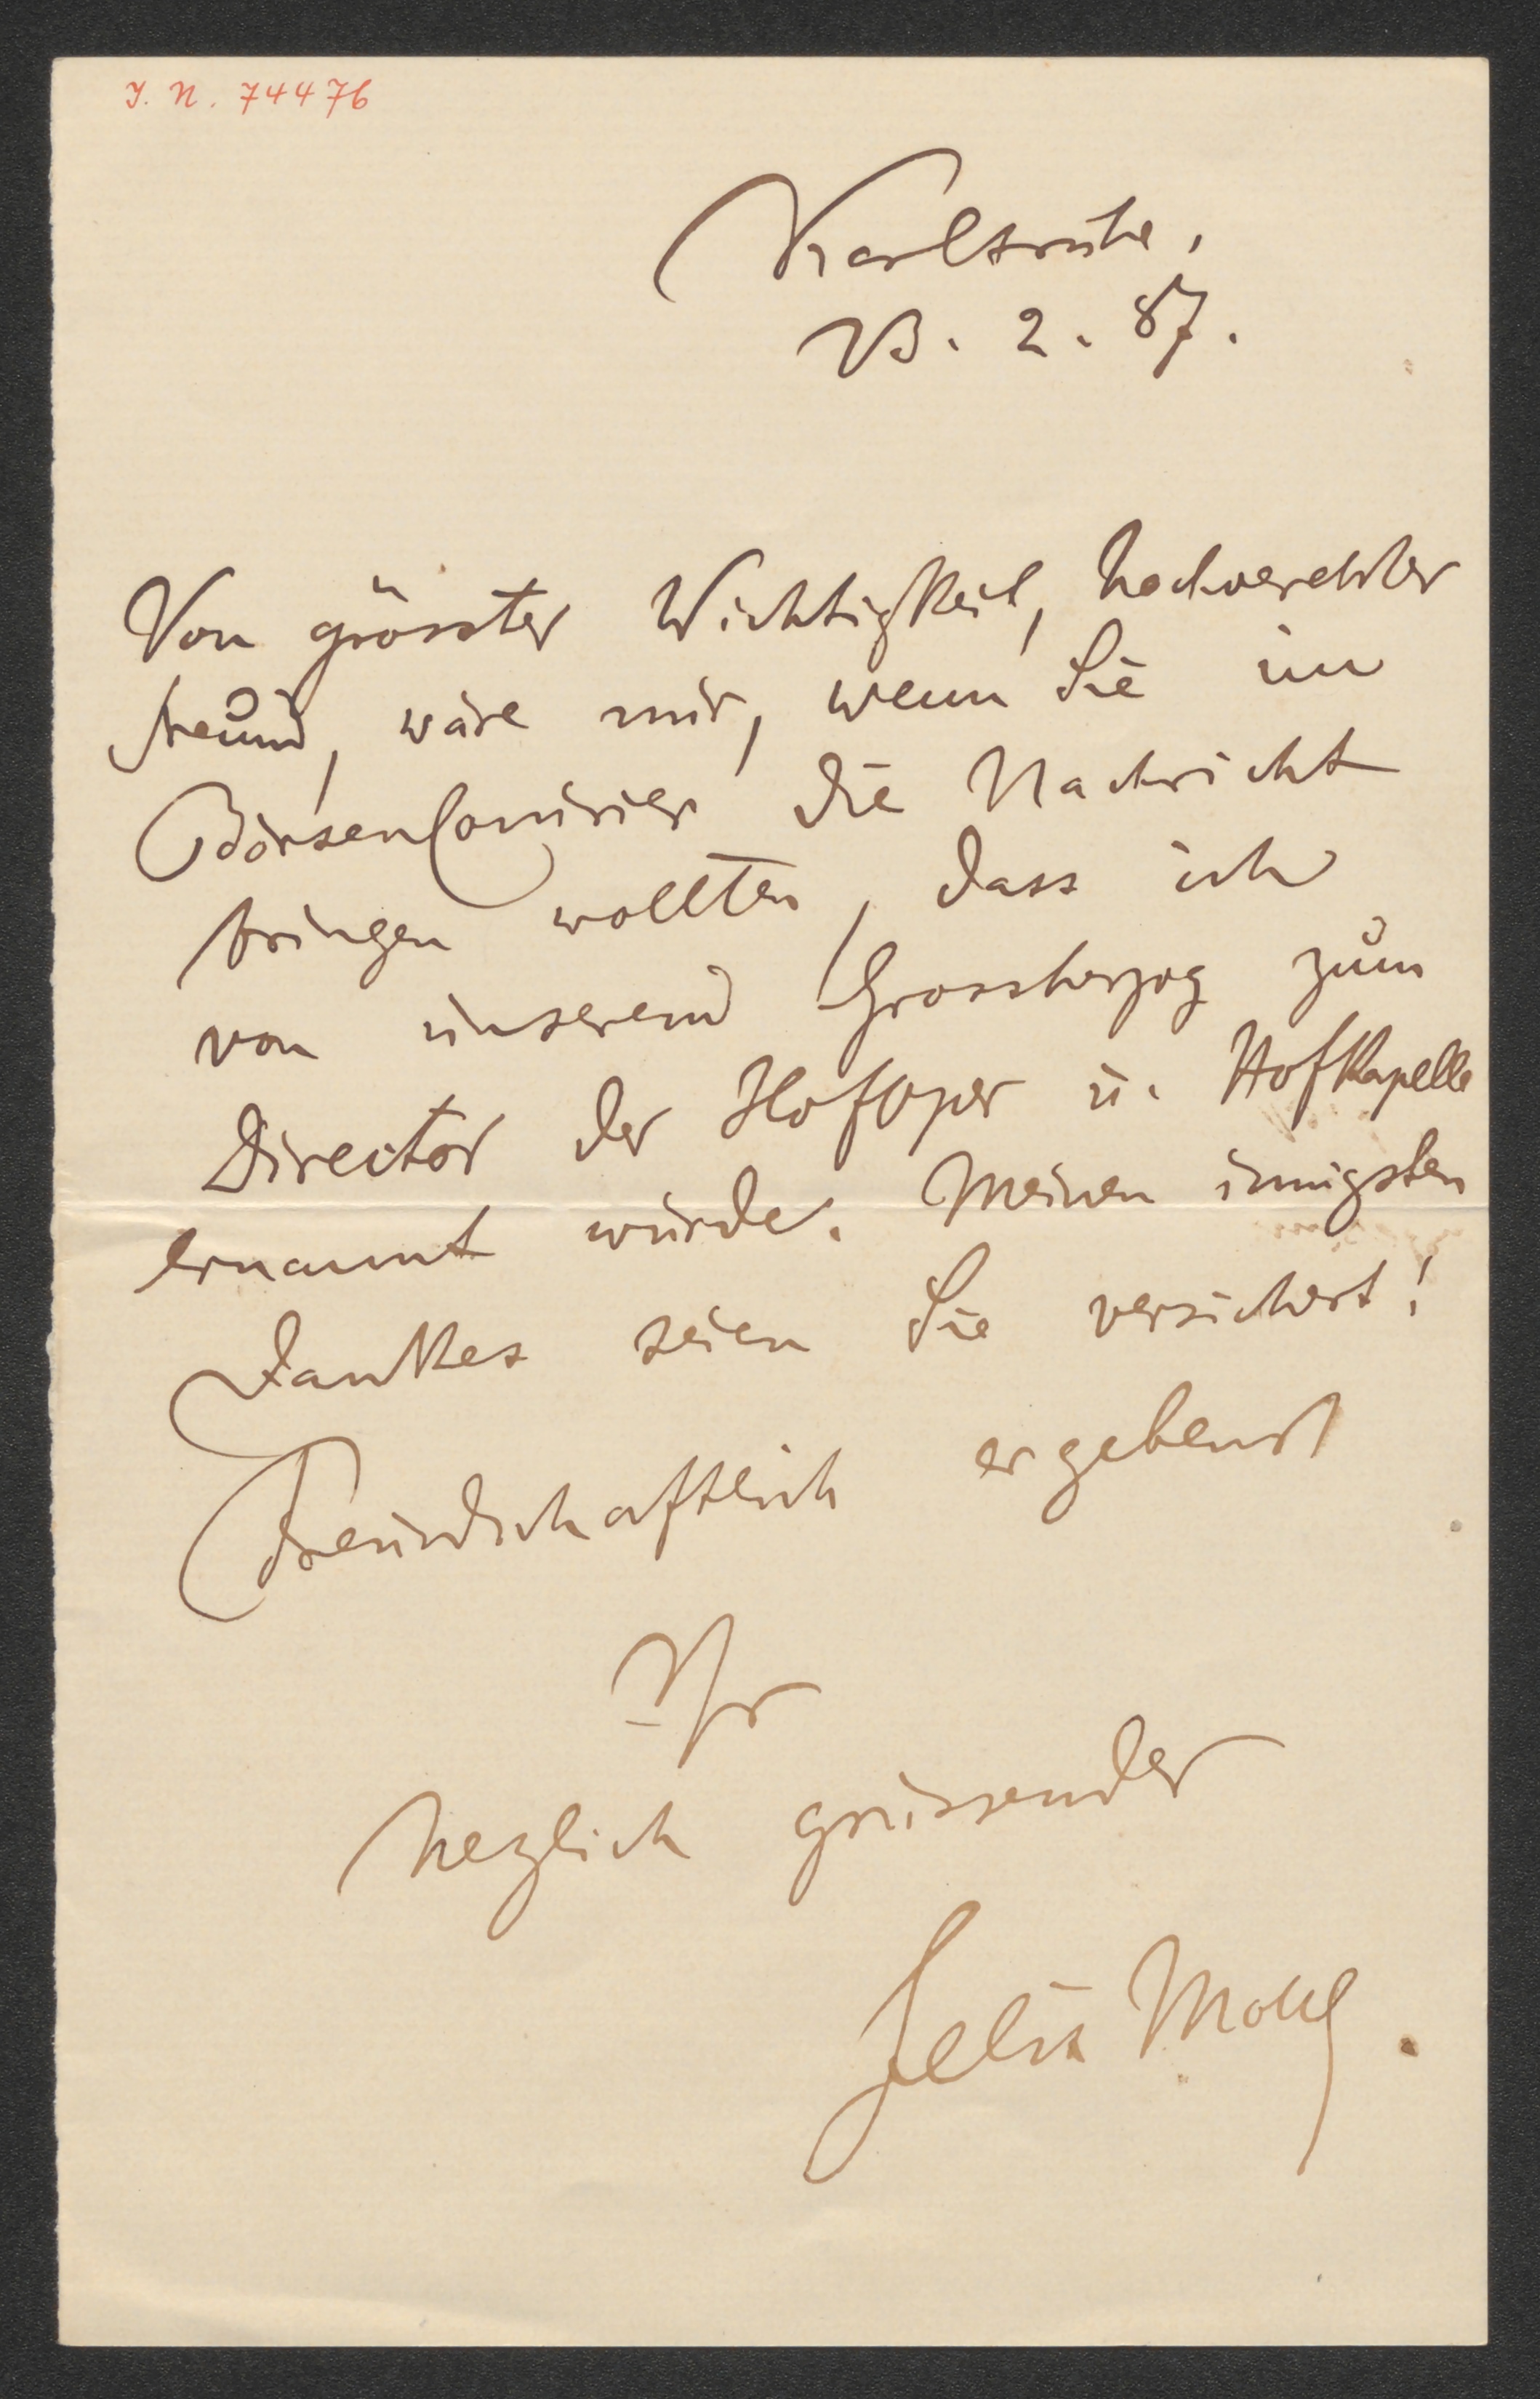 J. N. 74476
Karlsruhe,
23. 2. 87.
Von grösster Wichtigkeit, hochverehrter
Freund, wäre mir, wenn Sie im
BörsenCourier die Nachricht
bringen wollten, dass ich
von unserem Grossherzog zum
Director der Hofoper u. Hofkapelle
ernannt wurde. Meinen innigsten
Dankes seien Sie versichert!
Freundschaftlich ergebenst
Ihr
herzlich grüssender
Felix Mottl.